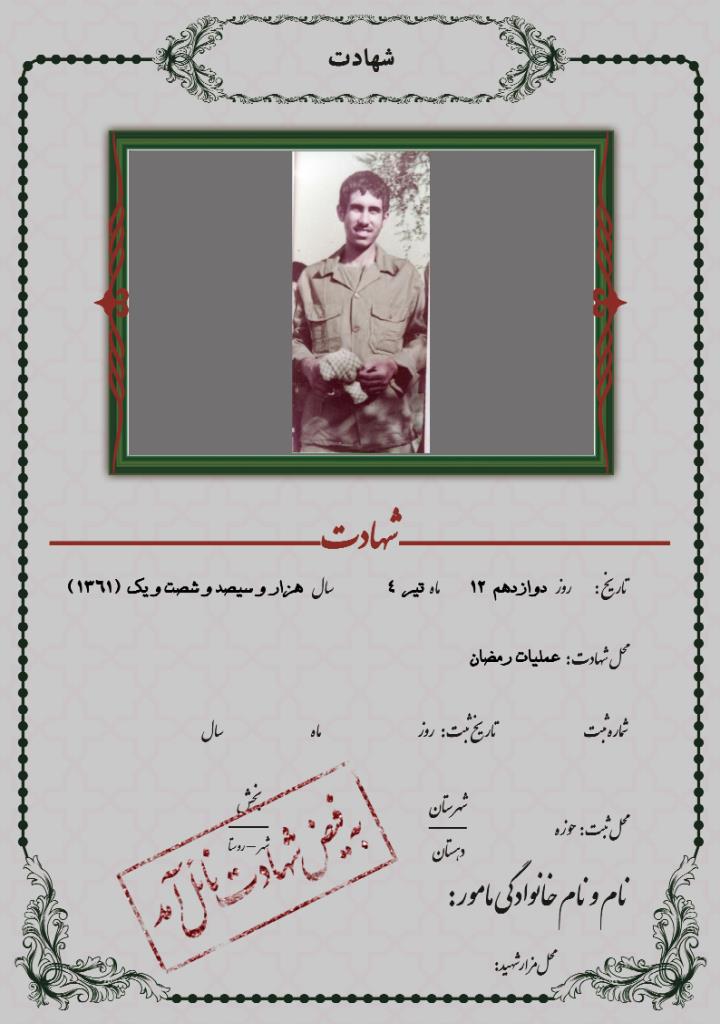 شهادت
شهادت
تاریخ: روز دوازدهم ۱۲ ماه تیر ٤ سال هزار و سیصد و شصت و یک (۱۳٦۱)
محل شهادت: عملیات رمضان
شماره ثبت تاریخ ثبت: روز ماه سال
محل ثبت: حوزه شهرستان بخش
دهستان شهر – روستا
به فیض شهادت نائل آمد
نام و نام خانوادگی مامور:
محل مزار شهید: